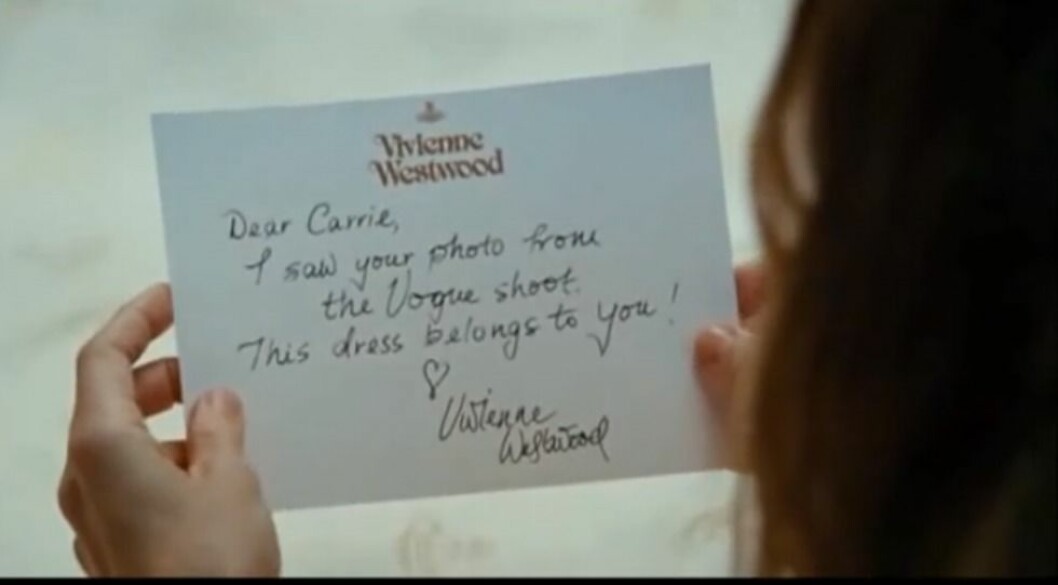 Vivienne
Westwood
Dear Carrie,
I saw your photo from
the Vogue shoot.
This dress belongs to you!
♡
Vivienne
Westwood